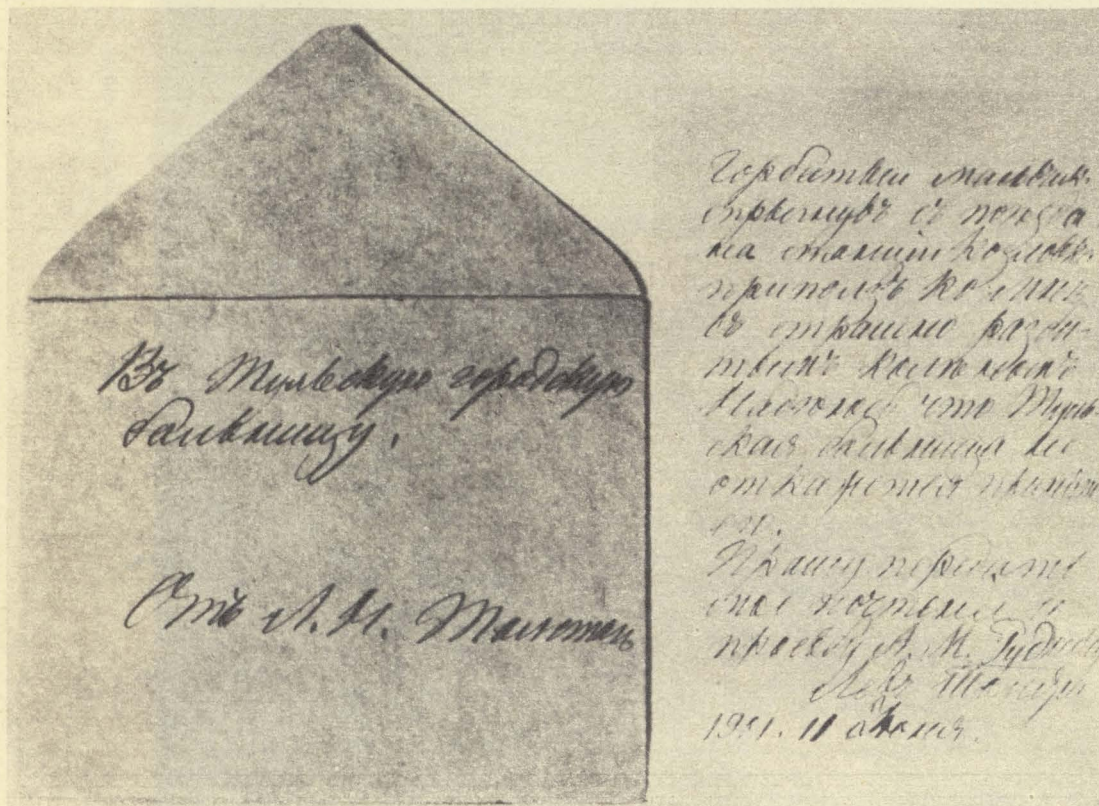 Въ Тульскую городскую
больницу.
Отъ Л. Н. Толстого
Горбатый мальчик
спрыгнувъ съ поезда
на станции Козловк
приползъ ко мне
съ страшно разби
тымъ коленомъ
Надеюсь что Туль
ская больница не
откажется принять
его.
Прошу передать
мое почтение и
прозьбу А. М. Рудневу
Левъ Толстой
11 июня.